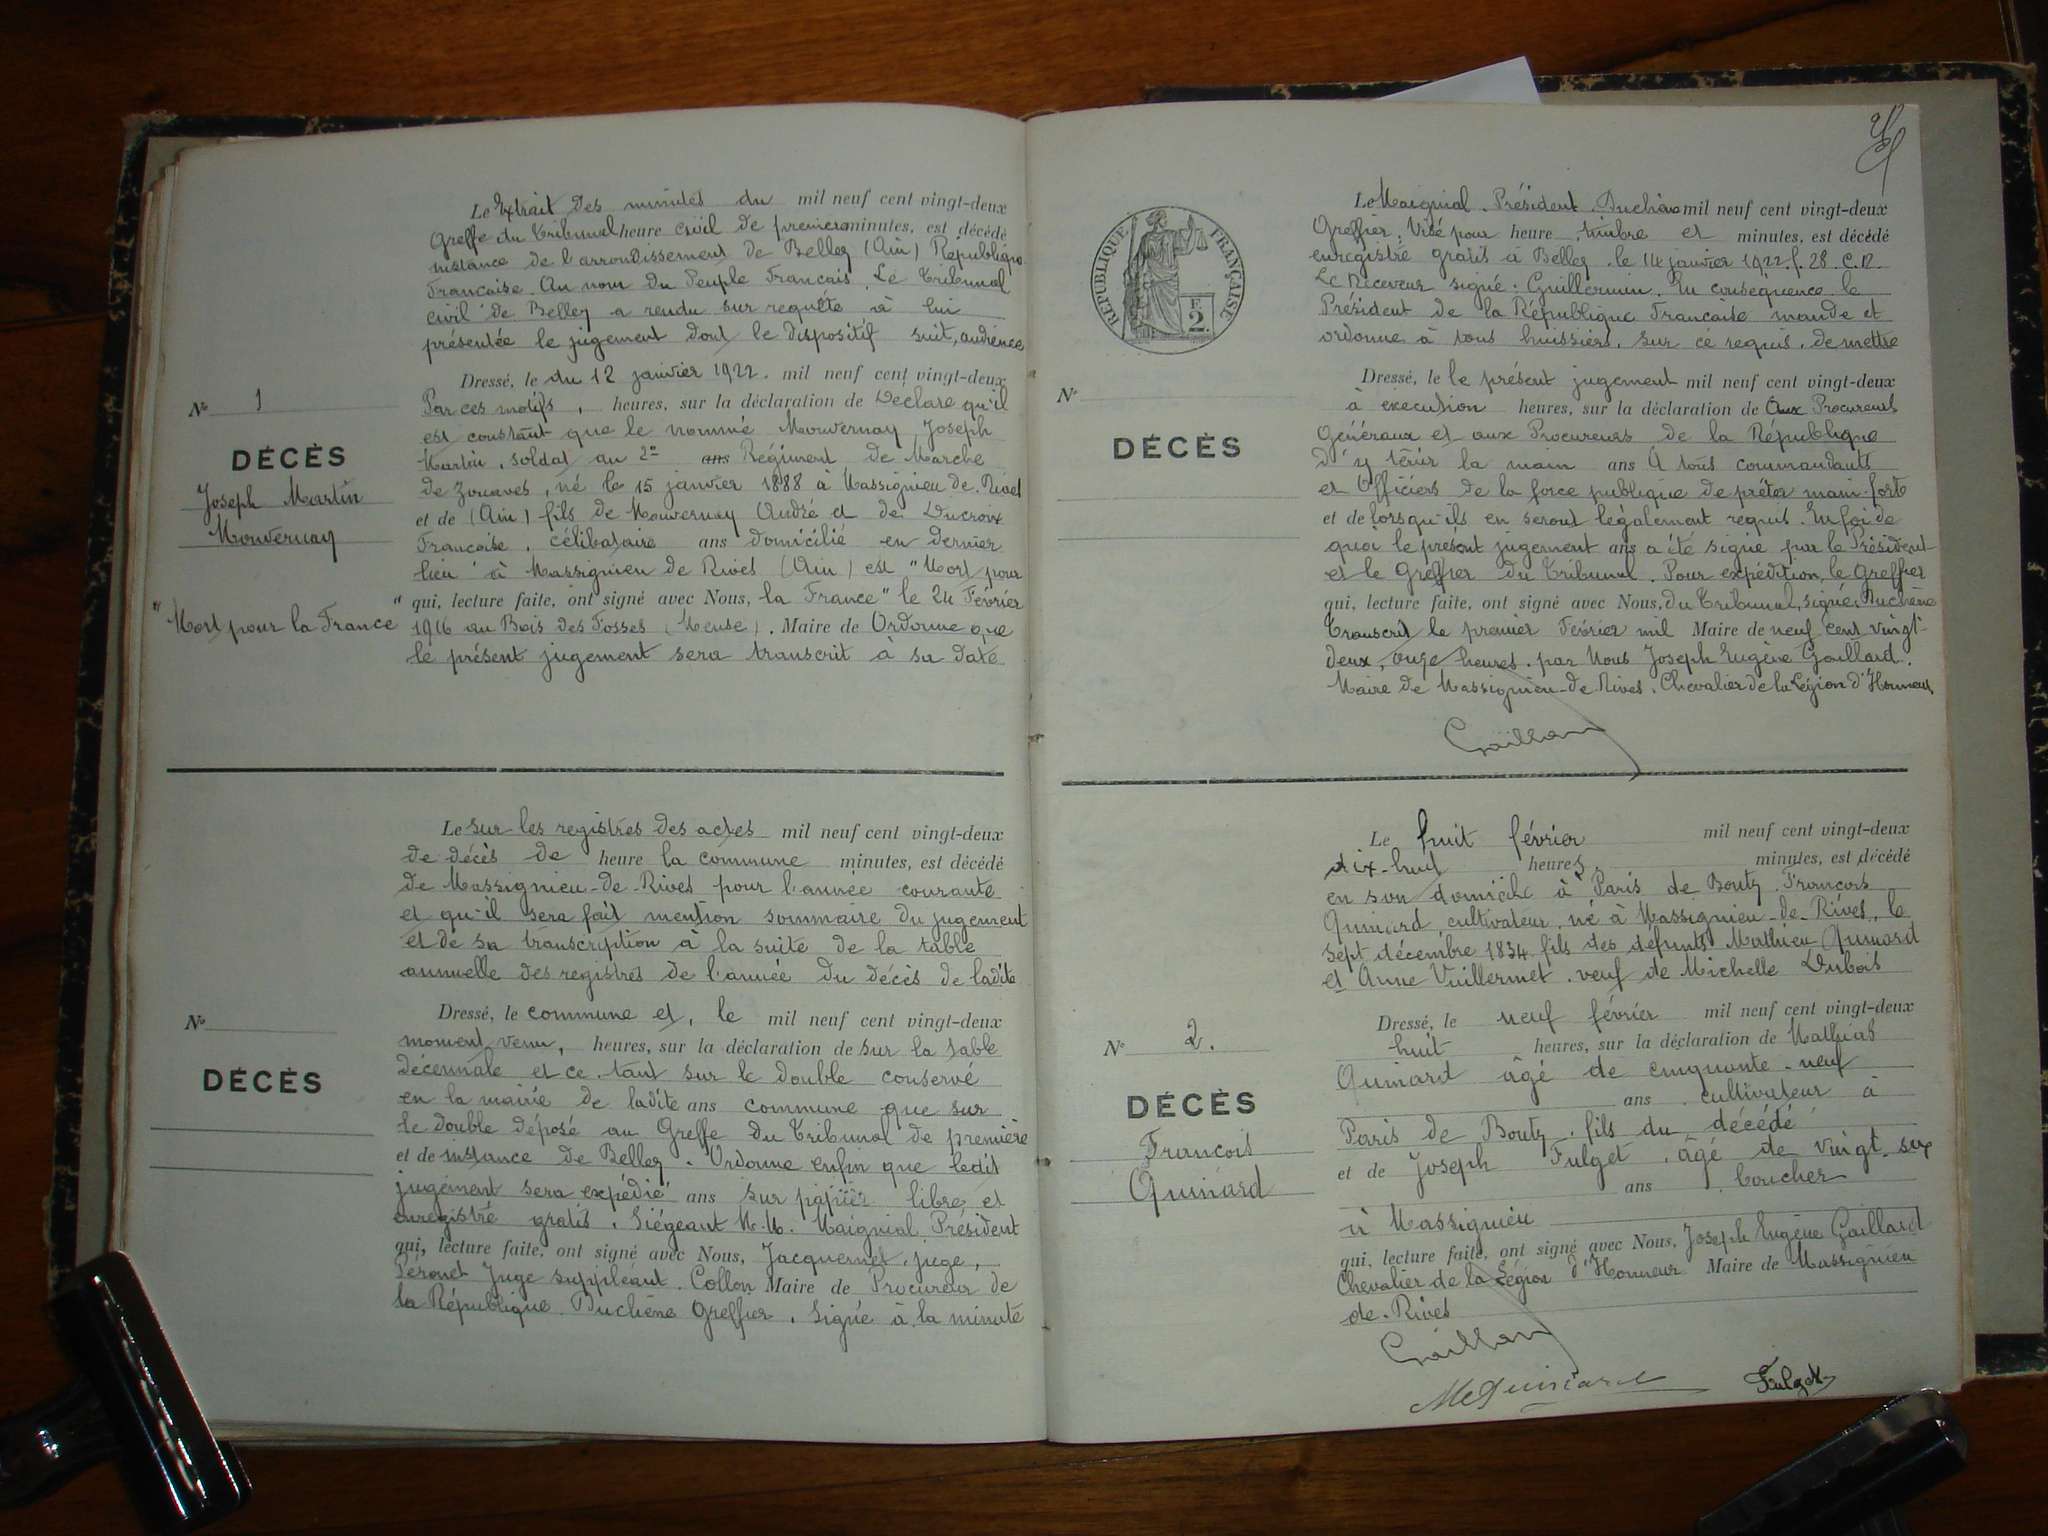 Le Extrait des minutes du mil neuf cent vingt-deux
Greffe du Tribunal heure civil de première minutes, est décédé
instance de l'arrondissement de Belley (Ain) République
Française. Au nom du Peuple Français. Le Tribunal
civil de Belley a rendu sur requête à lui
présentée le jugement dont le dispositif suit, audience
Dressé, le du 12 janvier 1922. mil neuf cent vingt-deux
Par ces motifs, heures, sur la déclaration de Déclare qu'il
est constant que le nommé Mouvernay Joseph
Martin, soldat au 2e ans Régiment de Marche
de Zouaves, né le 15 janvier 1888 à Massignieu de Rives
et de (Ain) fils de Mouvernay André et de Ducroix
Françoise, célibataire ans domicilié en dernier
lieu à Massignieu de Rives (Ain) est "Mort pour
qui, lecture faite, ont signé avec Nous, la France" le 24 Février
1916 au Bois des Fosses (Meuse). Maire de Ordonne que
le présent jugement sera transcrit à sa date
No 1
DÉCÈS
Joseph Martin
Mouvernay
"Mort pour la France"
Le sur les registres des actes mil neuf cent vingt-deux
de décès de heure la commune minutes, est décédé
de Massignieu-de-Rives pour l'année courante
et qu'il sera fait mention sommaire du jugement
et de sa transcription à la suite de la table
annuelle des registres de l'année du décès de ladite
Dressé, le commune et, le mil neuf cent vingt-deux
moment venu, heures, sur la déclaration de sur la table
décennale et ce tant sur le double conservé
en la mairie de ladite ans commune que sur
le double déposé au Greffe du Tribunal de première
et de instance de Belley. Ordonne enfin que ledit
jugement sera expédié ans sur papier libre et
enregistré gratis. Siégeant M.M. Maignial Président
qui, lecture faite, ont signé avec Nous, Jacquemet, juge,
Péronet Juge suppléant. Collon Maire de Procureur de
la République Duchêne Greffier. Signé à la minute
No
DÉCÈS
RÉPUBLIQUE FRANÇAISE
F.
2.
Le Maignial. Président. Duchêne mil neuf cent vingt-deux
Greffier. Visé pour heure timbre et minutes, est décédé
enregistré gratis à Belley. le 14 janvier 1922. f. 28. C. 12.
Le Receveur signé: Guillermin. En conséquence le
Président de la République Française mande et
ordonne à tous huissiers, sur ce requis, de mettre
Dressé, le le présent jugement mil neuf cent vingt-deux
à exécution heures, sur la déclaration de Aux Procureurs
Généraux et aux Procureurs de la République
d'y tenir la main ans A tous commandants
et Officiers de la force publique de prêter main-forte
et de lorsqu'ils en seront légalement requis. En foi de
quoi le présent jugement ans a été signé par le Président
et le Greffier du Tribunal. Pour expédition, le Greffier
qui, lecture faite, ont signé avec Nous, du Tribunal, signé, Duchêne
Transcrit le premier Février mil Maire de neuf cent vingt-
deux, onze heures. par Nous Joseph Eugène Gaillard.
Maire de Massignieu-de-Rives. Chevalier de la Légion d'Honneur
Gaillard
No
DÉCÈS
Le huit février mil neuf cent vingt-deux
dix-huit heures minutes, est décédé
en son domicile à Paris de Boutz. François
Quinard, cultivateur, né à Massignieu-de-Rives, le
sept décembre 1834, fils des défunts Mathieu Quinard
et Anne Vuillermet. veuf de Michelle Dubois
Dressé, le neuf février mil neuf cent vingt-deux
huit heures, sur la déclaration de Mathias
Quinard âgé de cinquante-neuf
ans cultivateur à
Paris de Boutz. fils du décédé
et de Joseph Fulget, âgé de vingt-six
ans boucher
à Massignieu
qui, lecture faite, ont signé avec Nous, Joseph Eugène Gaillard
Chevalier de la Légion d'Honneur Maire de Massignieu
de-Rives
Gaillard
No 2.
DÉCÈS
François
Quinard
MQuinard
Fulget